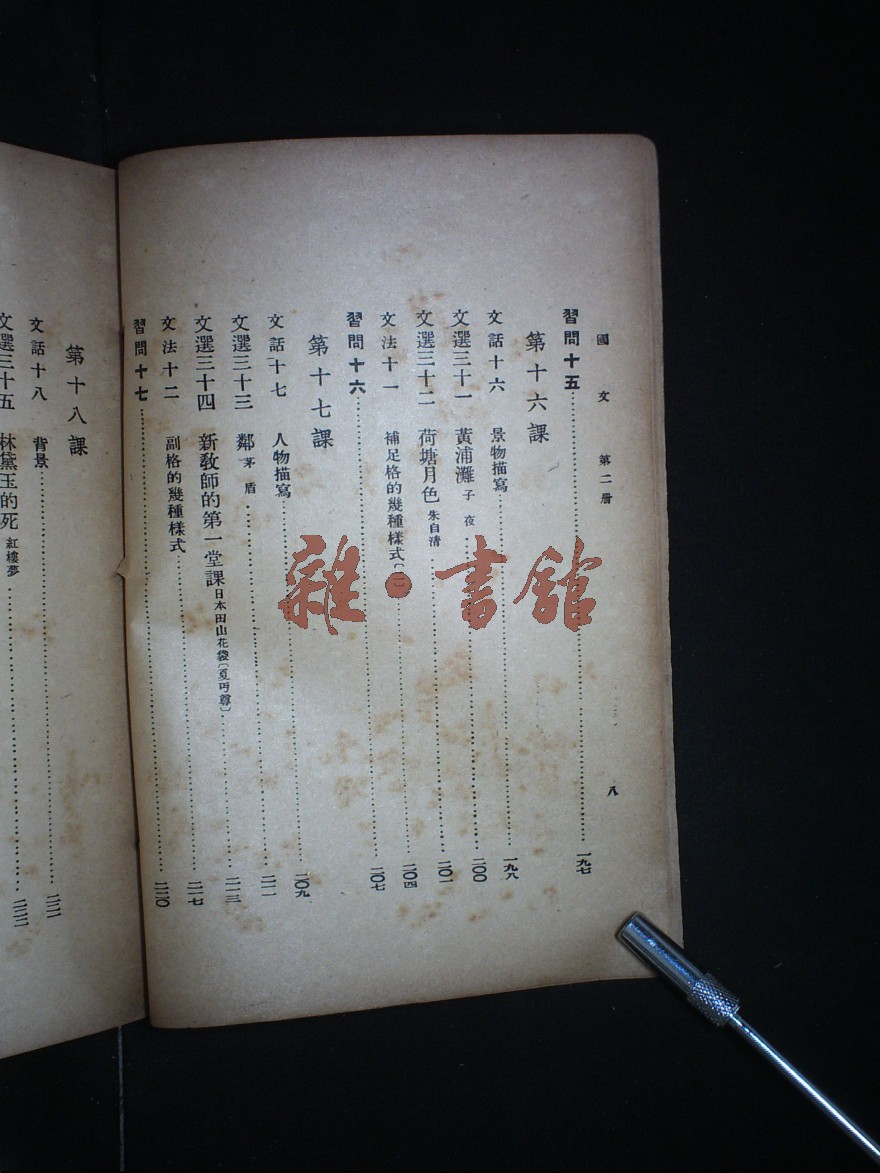 國文 第二册 八
習問十五……一九七
第十六課
文話十六 景物描寫……一九八
文選三十一 黃浦灘 子夜……二〇〇
文選三十二 荷塘月色 朱自清……二〇一
文法十一 補足格的幾種樣式〔二〕……二〇四
習問十六……二〇七
第十七課
文話十七 人物描寫……二〇九
文選三十三 鄰 茅盾……二一一
文選三十四 新教師的第一堂課 日本田山花袋〔夏丏尊〕……二一三
文法十二 副格的幾種樣式……二一七
習問十七……二二〇
第十八課
文話十八 背景……
文選三十五 林黛玉的死 紅樓夢……二二三
雜·書館